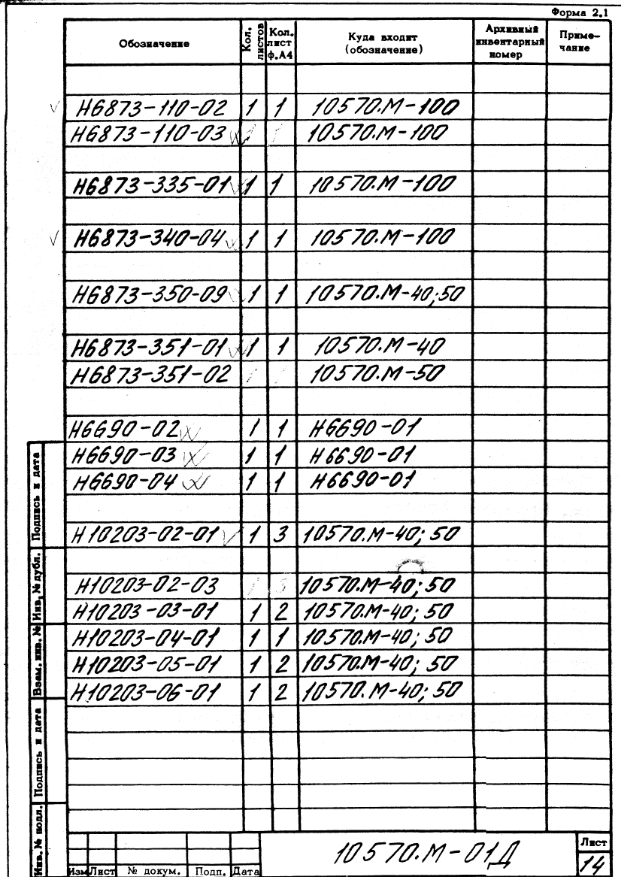 Форма 2.1
Обозначение Кол. листов Кол. лист ф.А4 Куда входит (обозначение) Архивный инвентарный номер Примечание
Н6873-110-02 1 1 10570.М-100
Н6873-110-03 1 1 10570.М-100
Н6873-335-01 1 1 10570.М-100
Н6873-340-04 1 1 10570.М-100
Н6873-350-09 1 1 10570.М-40;50
Н6873-351-01 1 1 10570.М-40
Н6873-351-02 10570.М-50
Н6690-02 1 1 Н6690-01
Н6690-03 1 1 Н6690-01
Н6690-04 1 1 Н6690-01
Н10203-02-01 1 3 10570.М-40; 50
Н10203-02-03 10570.М-40; 50
Н10203-03-01 1 2 10570.М-40; 50
Н10203-04-01 1 1 10570.М-40; 50
Н10203-05-01 1 2 10570.М-40; 50
Н10203-06-01 1 2 10570.М-40; 50
Инв. № подл. Подпись и дата Взам. инв. № Инв. № дубл. Подпись и дата
Изм Лист № докум. Подп. Дата
10570.М-01Д
Лист
14